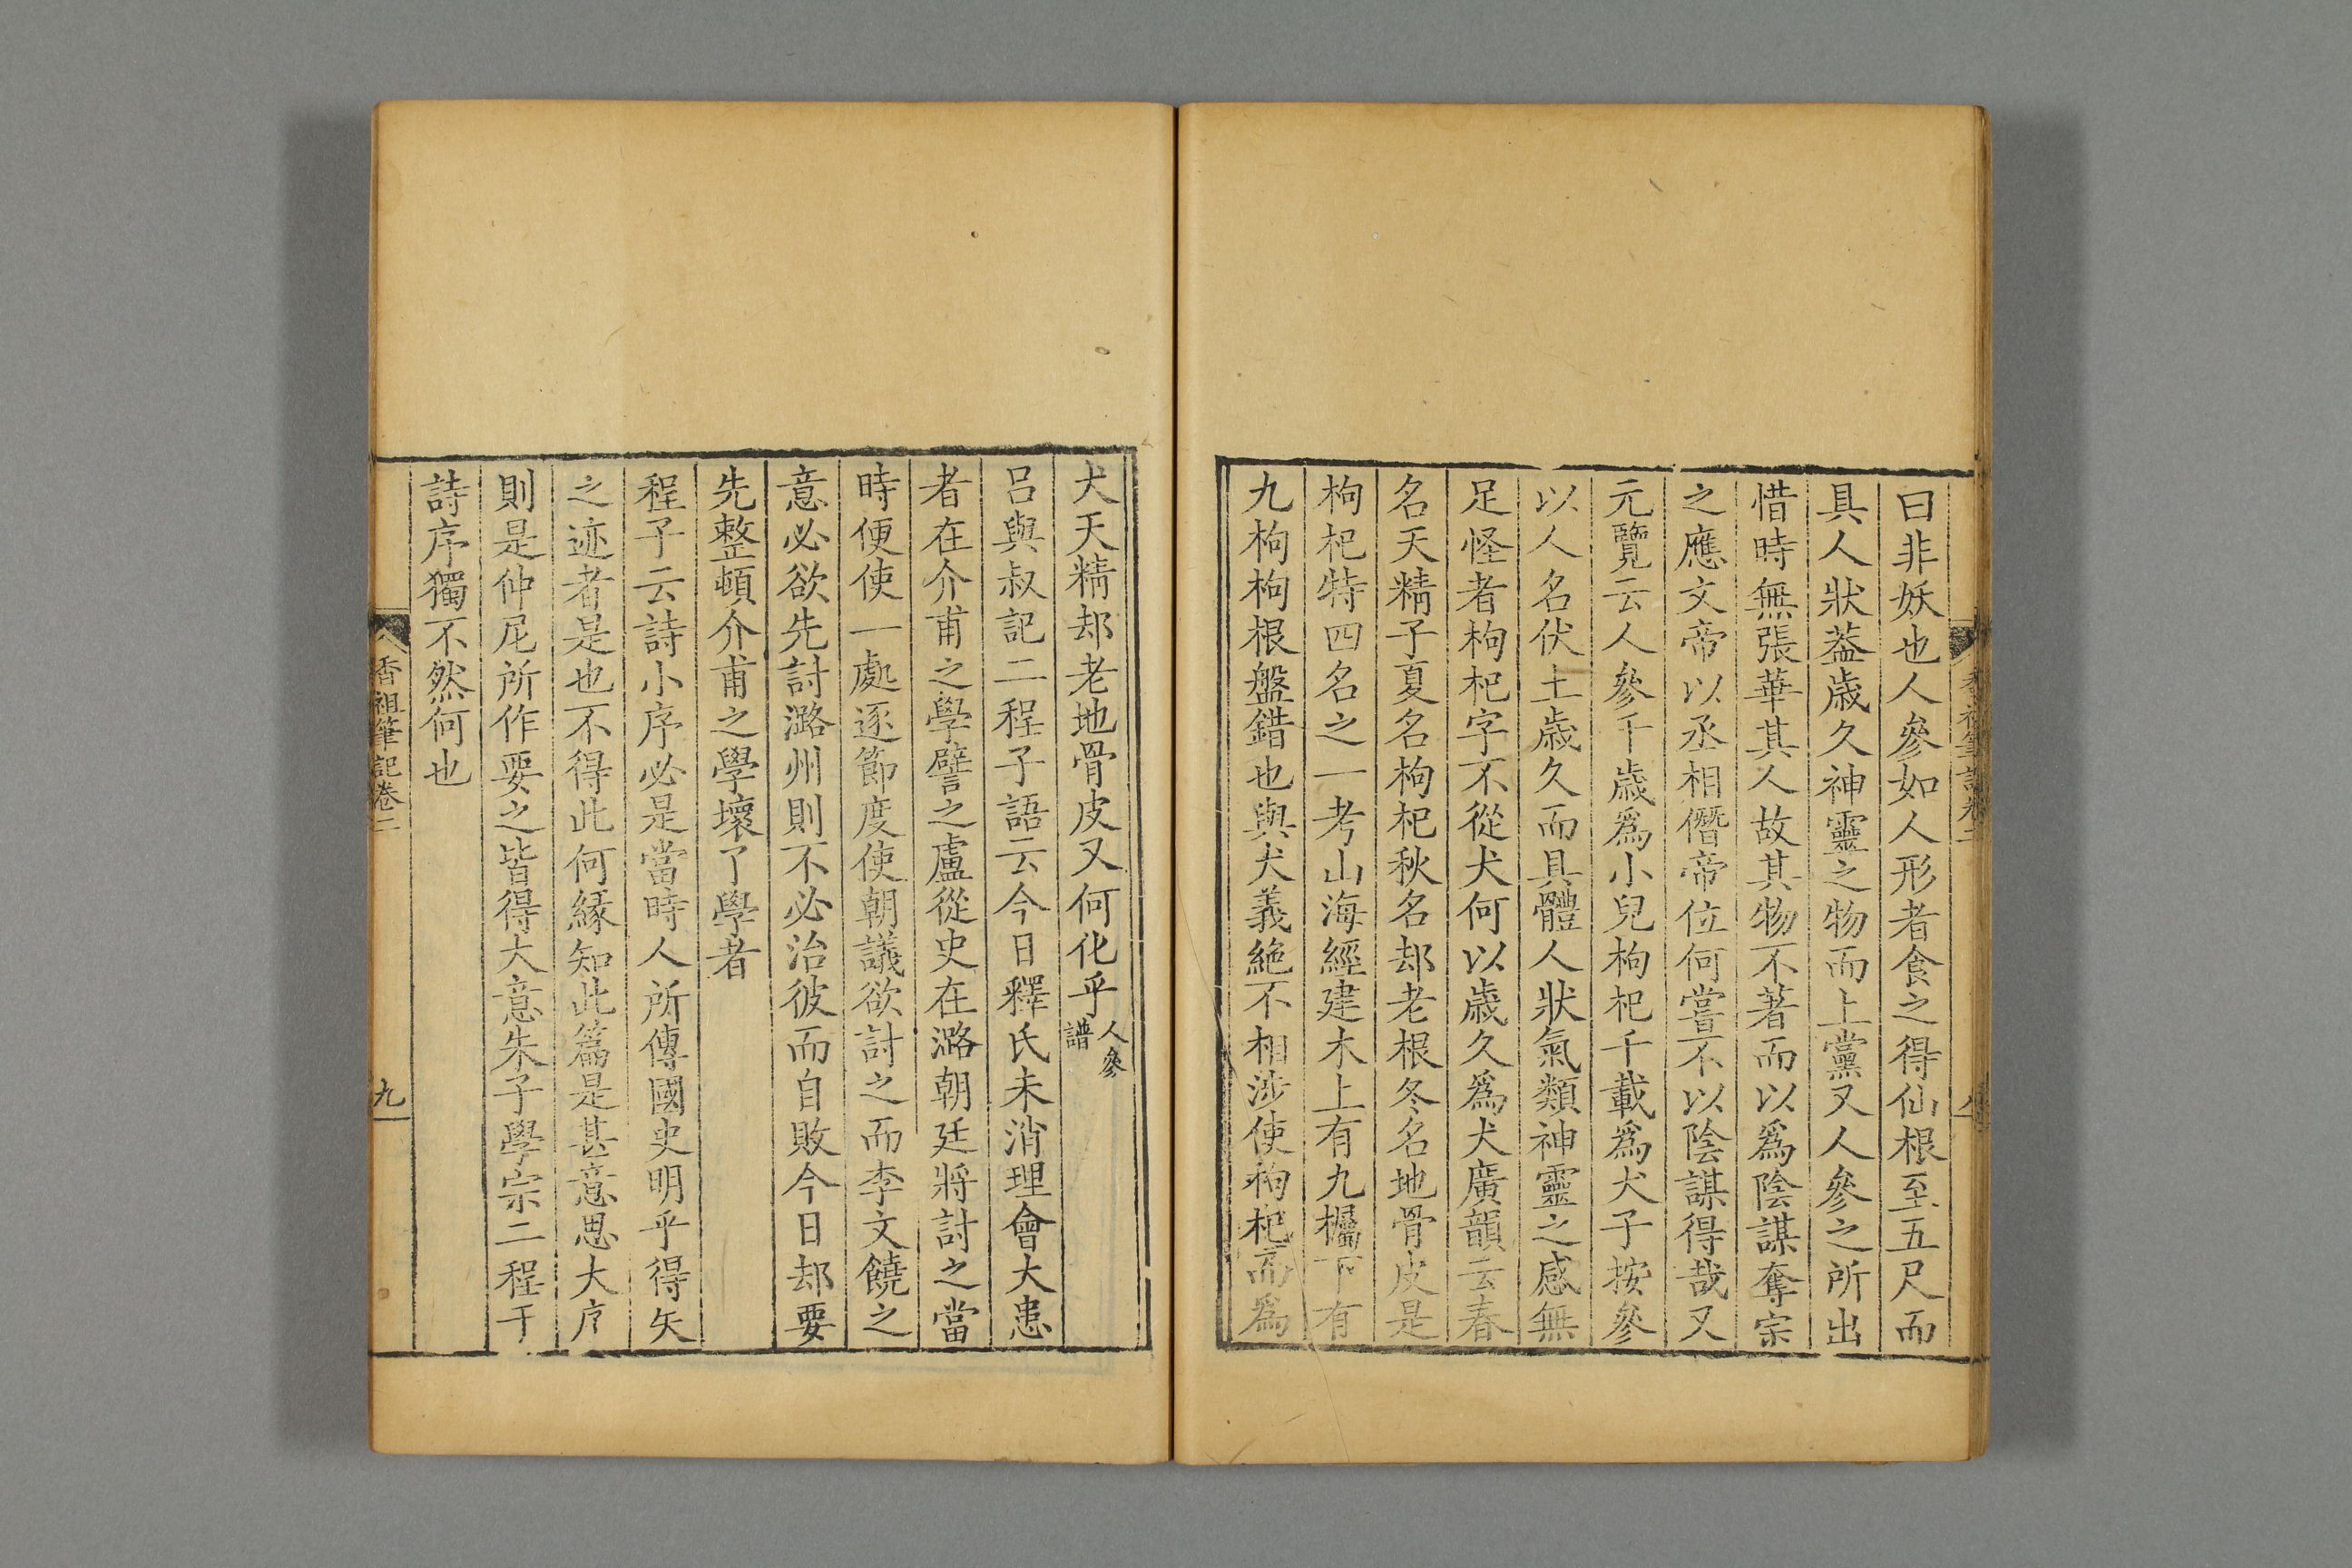 曰非妖也人參如人形者食之得仙根至五尺而
具人狀葢歳久神靈之物而上黨又人參之所出
惜時無張華其人故其物不著而以爲陰謀奪宗
之應文帝以丞相僭帝位何嘗不以陰謀得哉又
元覽云人參千歳爲小兒枸杞千載爲犬子按參
以人名伏土歳久而具體人狀氣類神靈之感無
足怪者枸杞字不從犬何以歳久爲犬廣韻云春
名天精子夏名枸杞秋名却老根冬名地骨皮是
枸杞特四名之一考山海經建木上有九欘下有
九枸枸根盤錯也與犬義絶不相涉使枸杞而爲
犬天精却老地骨皮又何化乎人參譜
呂與叔記二程子語云今日釋氏未消理會大患
者在介甫之學譬之盧從史在潞朝廷將討之當
時便使一處逐節度使朝議欲討之而李文饒之
意必欲先討潞州則不必治彼而自敗今日却要
先整頓介甫之學壞了學者
程子云詩小序必是當時人所傳國史明乎得矢
之迹者是也不得此何緣知此篇是甚意思大序
則是仲尼所作要之皆得大意朱子學宗二程于
詩序獨不然何也
香祖筆記卷二
九